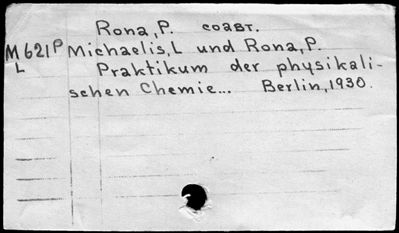 Rona, P. соавт.
M621P Michaelis, L und Rona, P.
L Praktikum der physikali-
schen Chemie... Berlin, 1930.